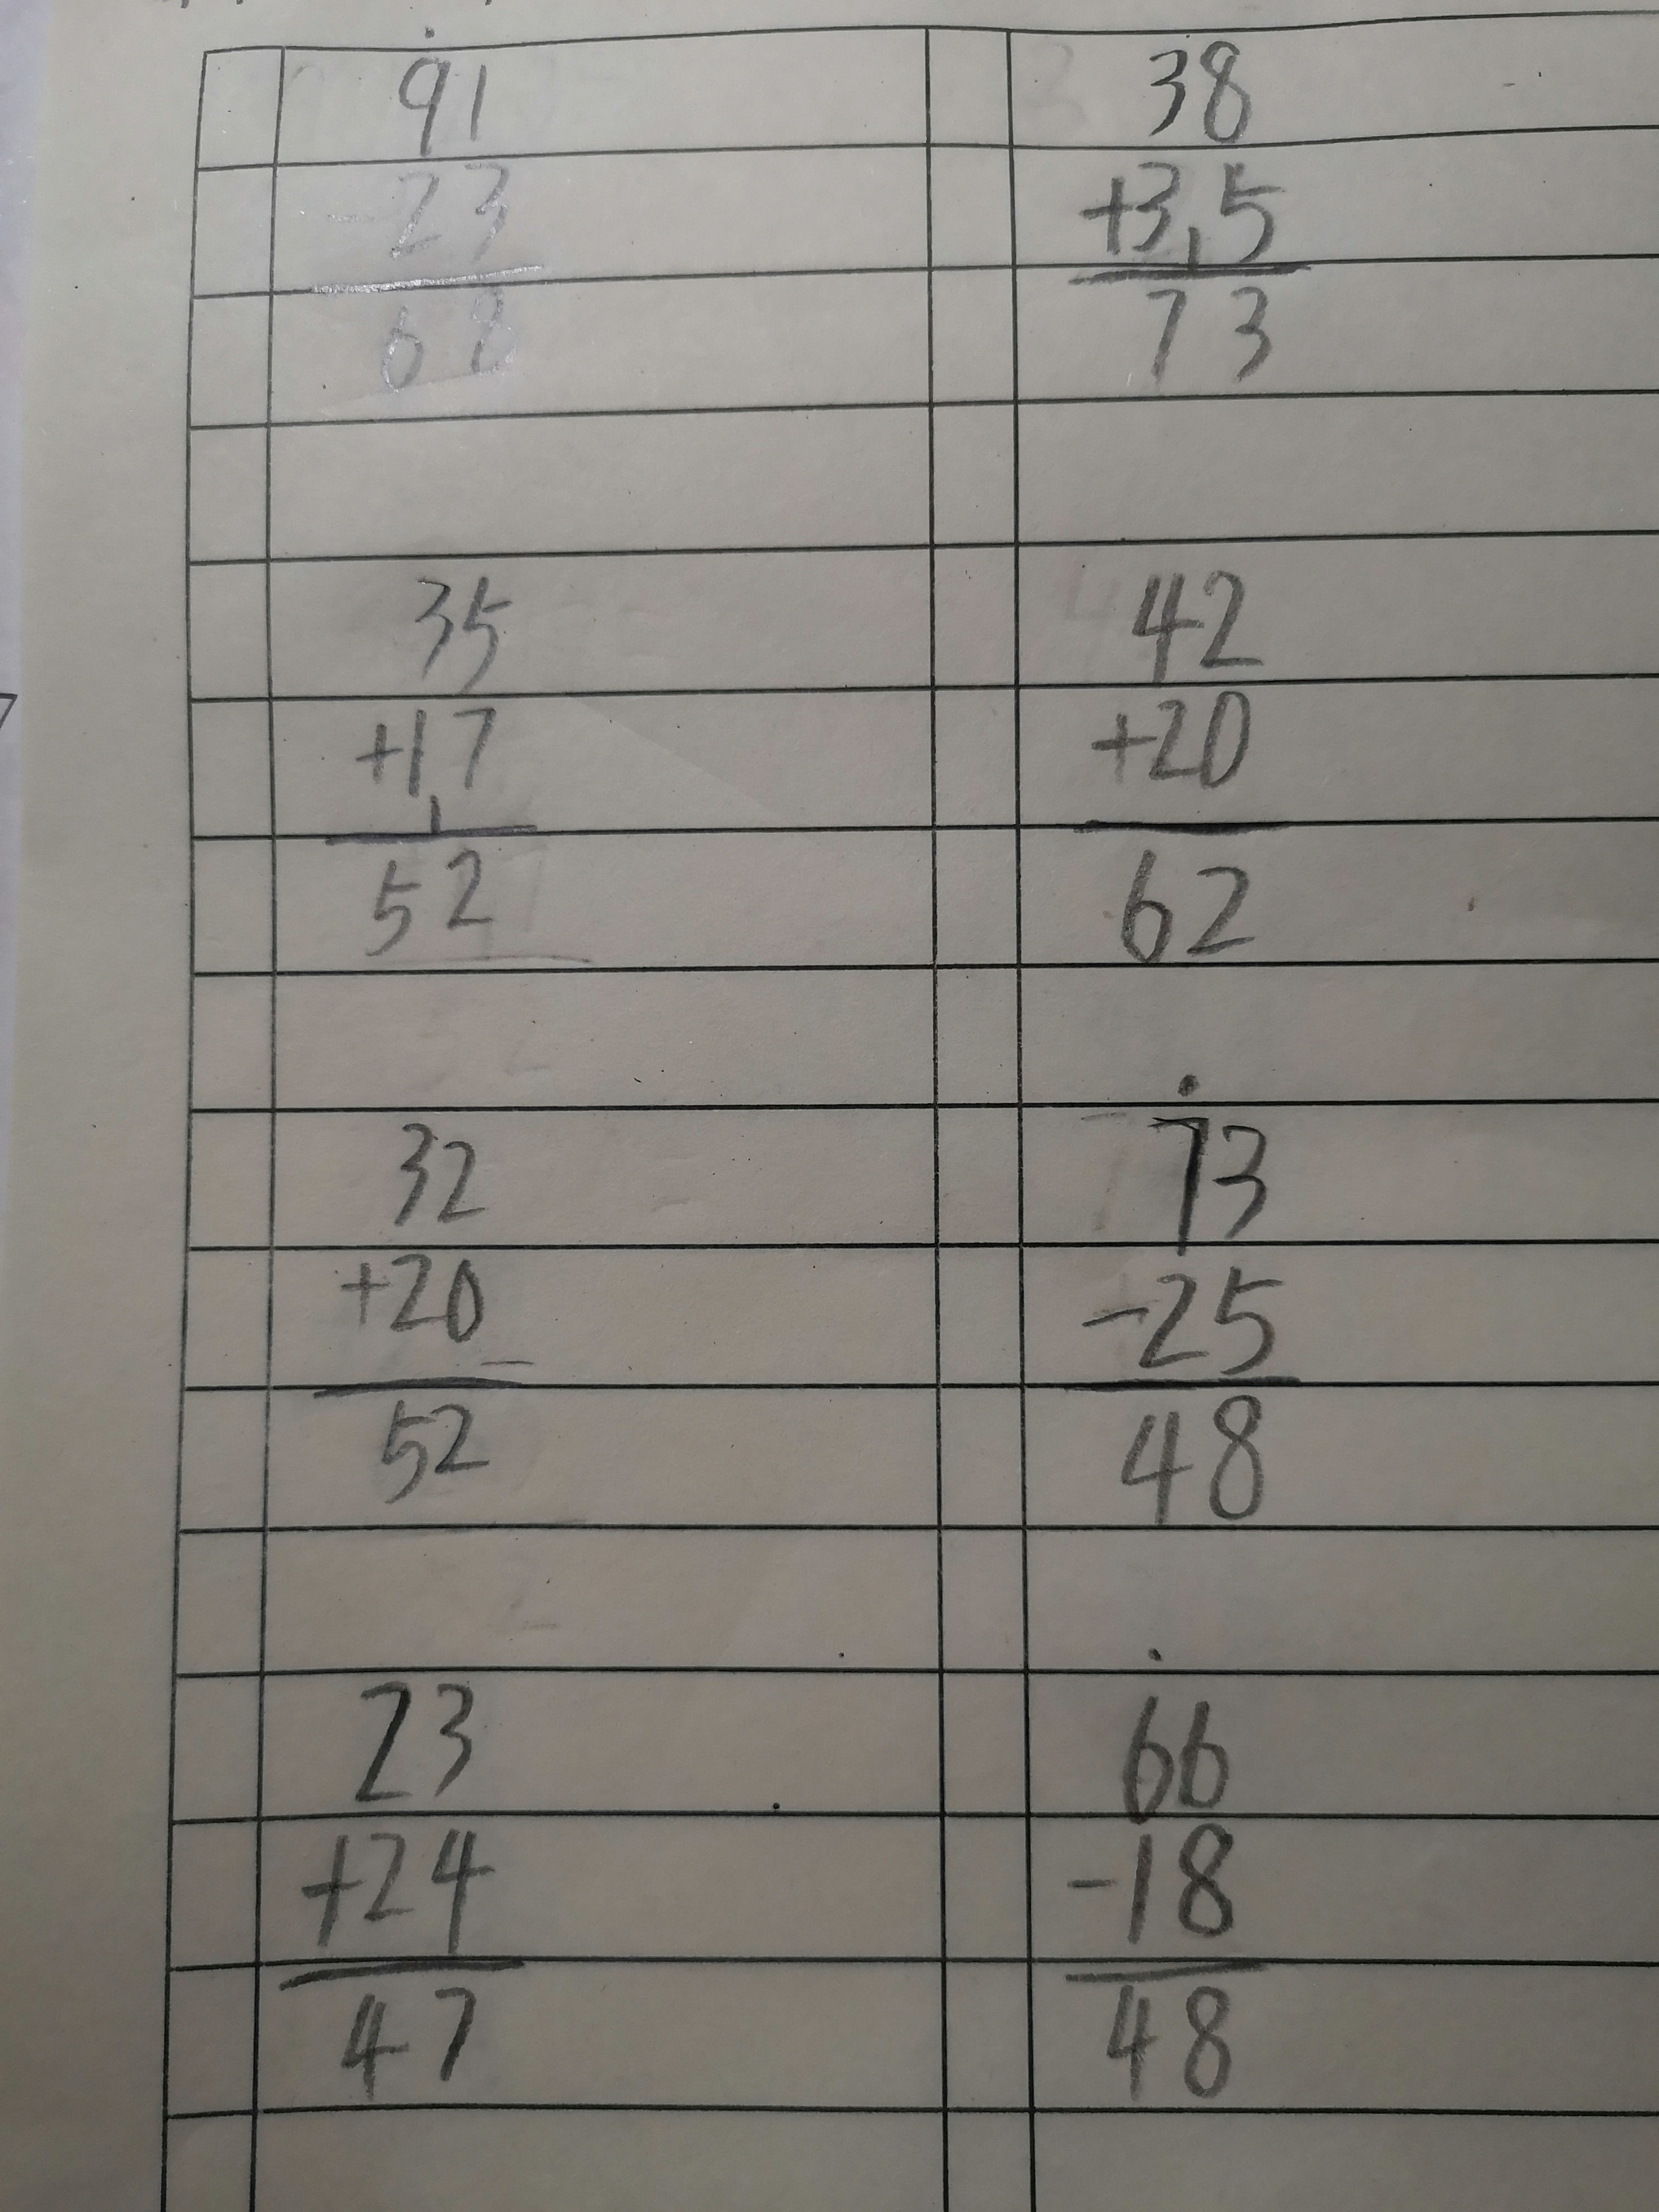 91
-23
68
38
+35
1
73
35
+17
1
52
42
+20
62
32
+20
52
73
-25
48
23
+24
47
66
-18
48